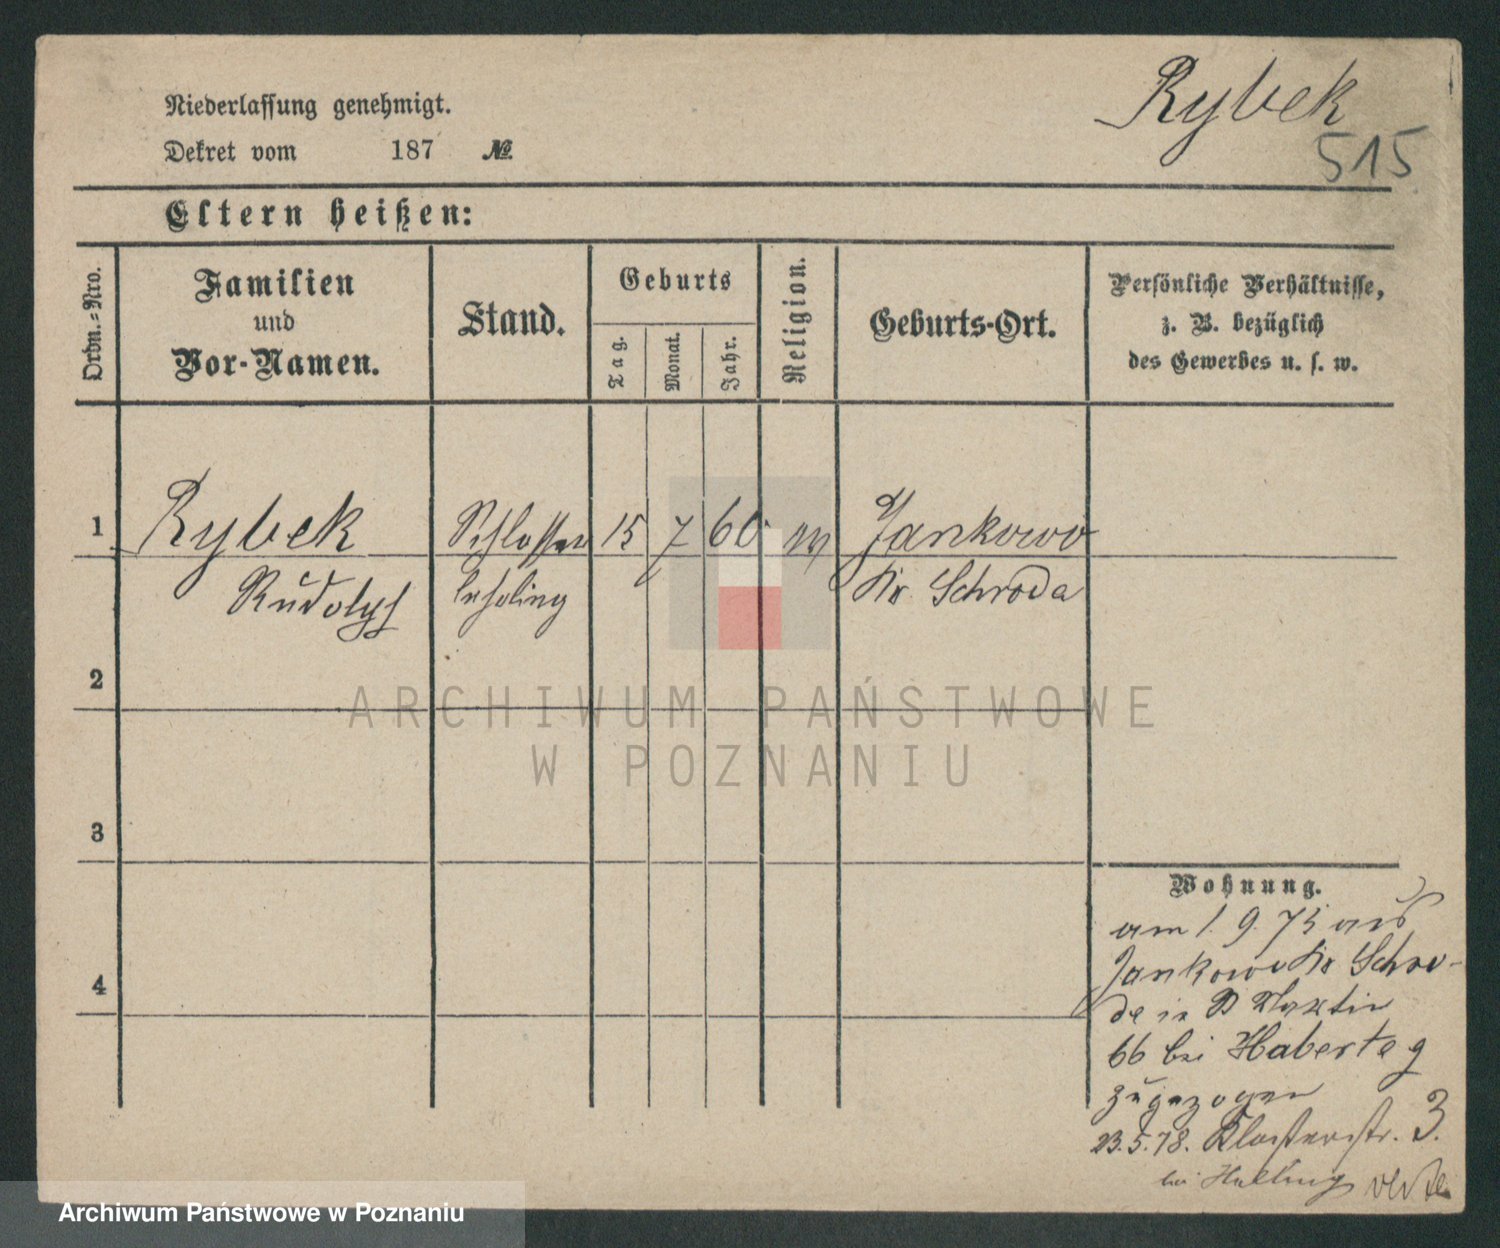 Niederlassung genehmigt.
Rybek
Dekret vom 187 №
515
Eltern heißen:
Ordn.-Nro.
Familien
und
Vor-Namen.
Stand.
Geburts
Tag.
Monat.
Jahr.
Religion.
Geburts-Ort.
Persönliche Verhältnisse,
z. B. bezüglich
des Gewerbes u. s. w.
1 Rybek Schlosser 15 7 60 Jankowo
Rudolph lehrling Kr. Schroda
2
ARCHIWUM PAŃSTWOWE
W POZNANIU
3
4
Wohnung.
am 1. 9. 75 aus
Jankowo Kr Schro-
da in Martin
66 bei Habertag
zugezogen
23.5.78. Klosterstr. 3.
bei
Archiwum Państwowe w Poznaniu